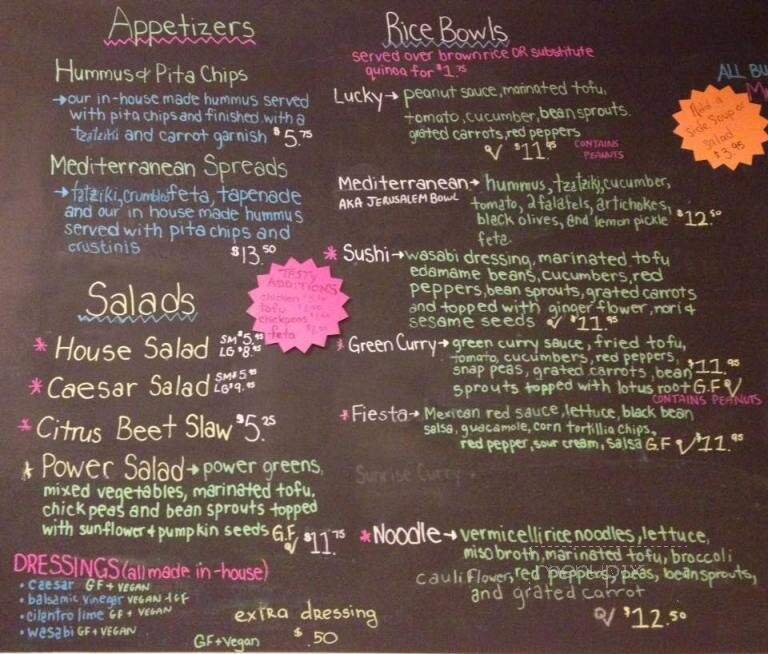 Appetizers
Hummus & Pita Chips
→ our in-house made hummus served
with pita chips and finished with a
tzatziki and carrot garnish $5.75
Mediterranean Spreads
→ tatziki, crumbled feta, tapenade
and our in house made hummus
served with pita chips and
crustinis
$13.50
TASTY
ADDITIONS
chicken
tofu
chickpeas
feta
Salads
* House Salad SM $5.95
LG $8.95
* Caesar Salad SM $5.95
LG $9.95
* Citrus Beet Slaw $5.25
* Power Salad → power greens,
mixed vegetables, marinated tofu,
chick peas and bean sprouts topped
with sunflower & pumpkin seeds G.F
V $11.75
DRESSINGS (all made in-house)
• caesar GF + VEGAN
• balsamic vinegar VEGAN + GF
• cilantro lime GF + VEGAN
• wasabi GF + VEGAN
extra dressing
GF + Vegan $.50
Rice Bowls
served over brown rice OR substitute
quinoa for $1.75
Lucky → peanut sauce, marinated tofu,
tomato, cucumber, bean sprouts.
grated carrots, red peppers
V $11.95 CONTAINS
PEANUTS
Mediterranean → hummus, tzatziki, cucumber,
AKA JERUSALEM BOWL tomato, 2 falafels, artichokes,
black olives, and lemon pickle $12.50
feta.
* Sushi → wasabi dressing, marinated tofu
edamame beans, cucumbers, red
peppers, bean sprouts, grated carrots
and topped with ginger flower, nori &
sesame seeds V $11.95
* Green Curry → green curry sauce, fried tofu,
tomato, cucumbers, red peppers,
snap peas, grated carrots, bean $11.95
sprouts topped with lotus root G.F V
CONTAINS PEANUTS
* Fiesta → Mexican red sauce, lettuce, black bean
salsa, guacamole, corn tortillia chips,
red pepper, sour cream, salsa G.F V $11.95
Sunrise Curry →
* Noodle → vermicelli rice noodles, lettuce,
miso broth, marinated tofu, broccoli
cauliflower, red pepper, peas, bean sprouts,
and grated carrot
V $12.50
ALL BU
Add a
Side Soup or
Salad
$3.95
menupix